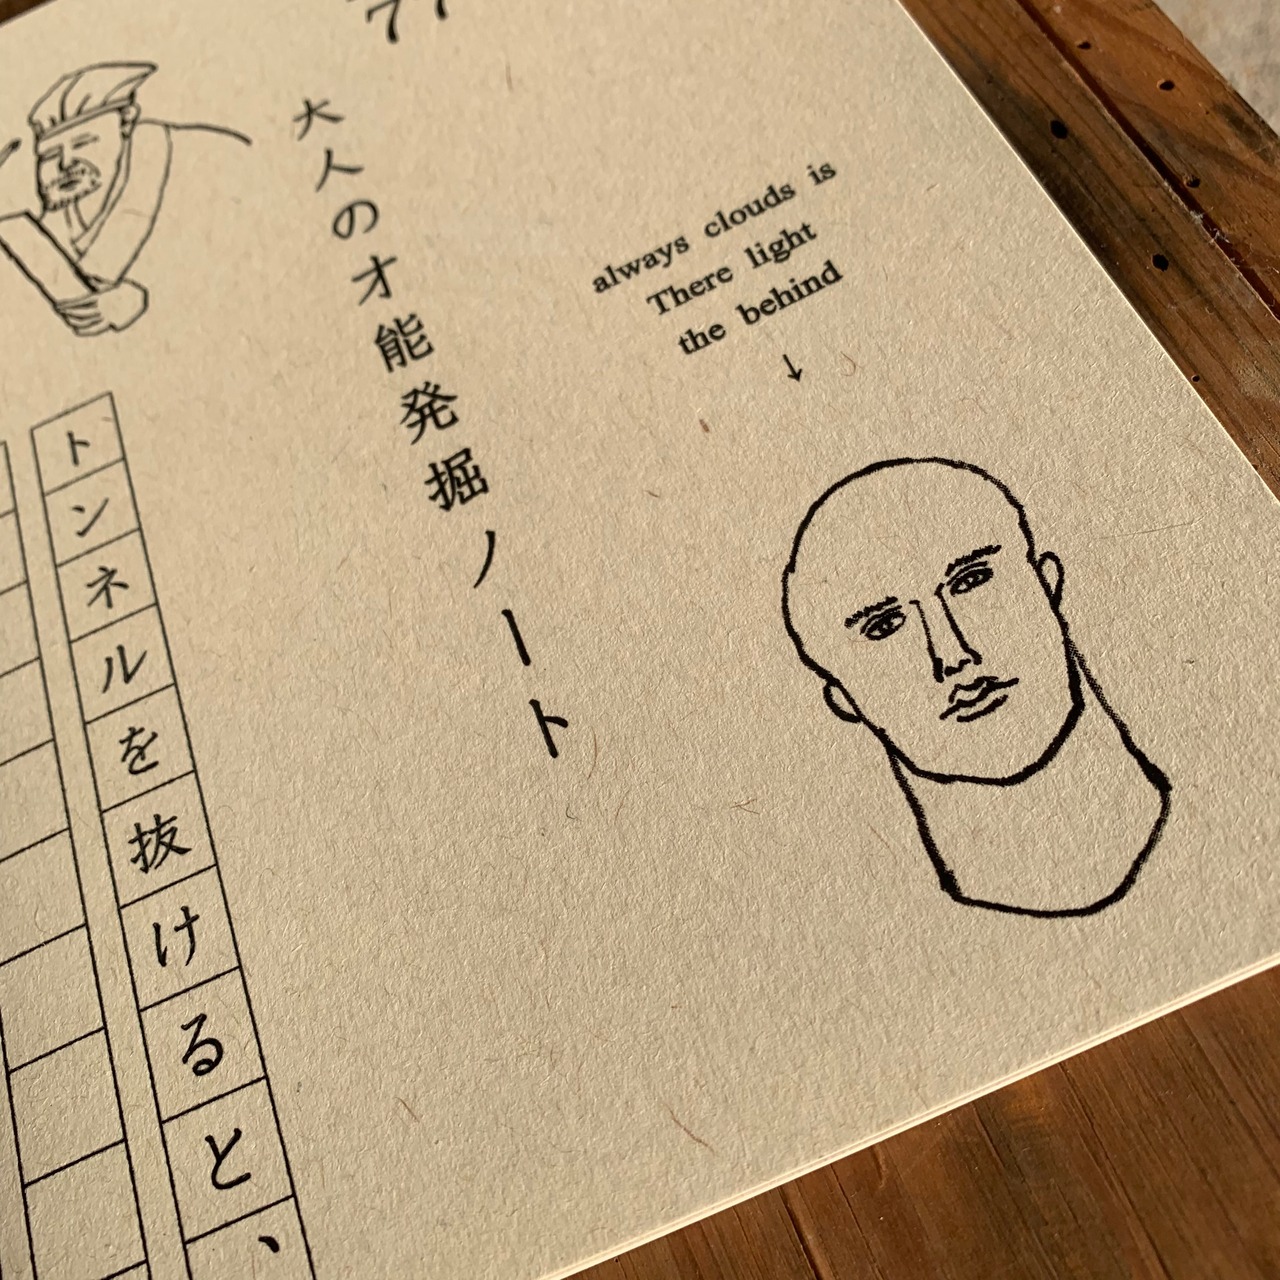 大人のオ能発掘ノート
always clouds is
There light
the behind
↓
トンネルを抜けると、